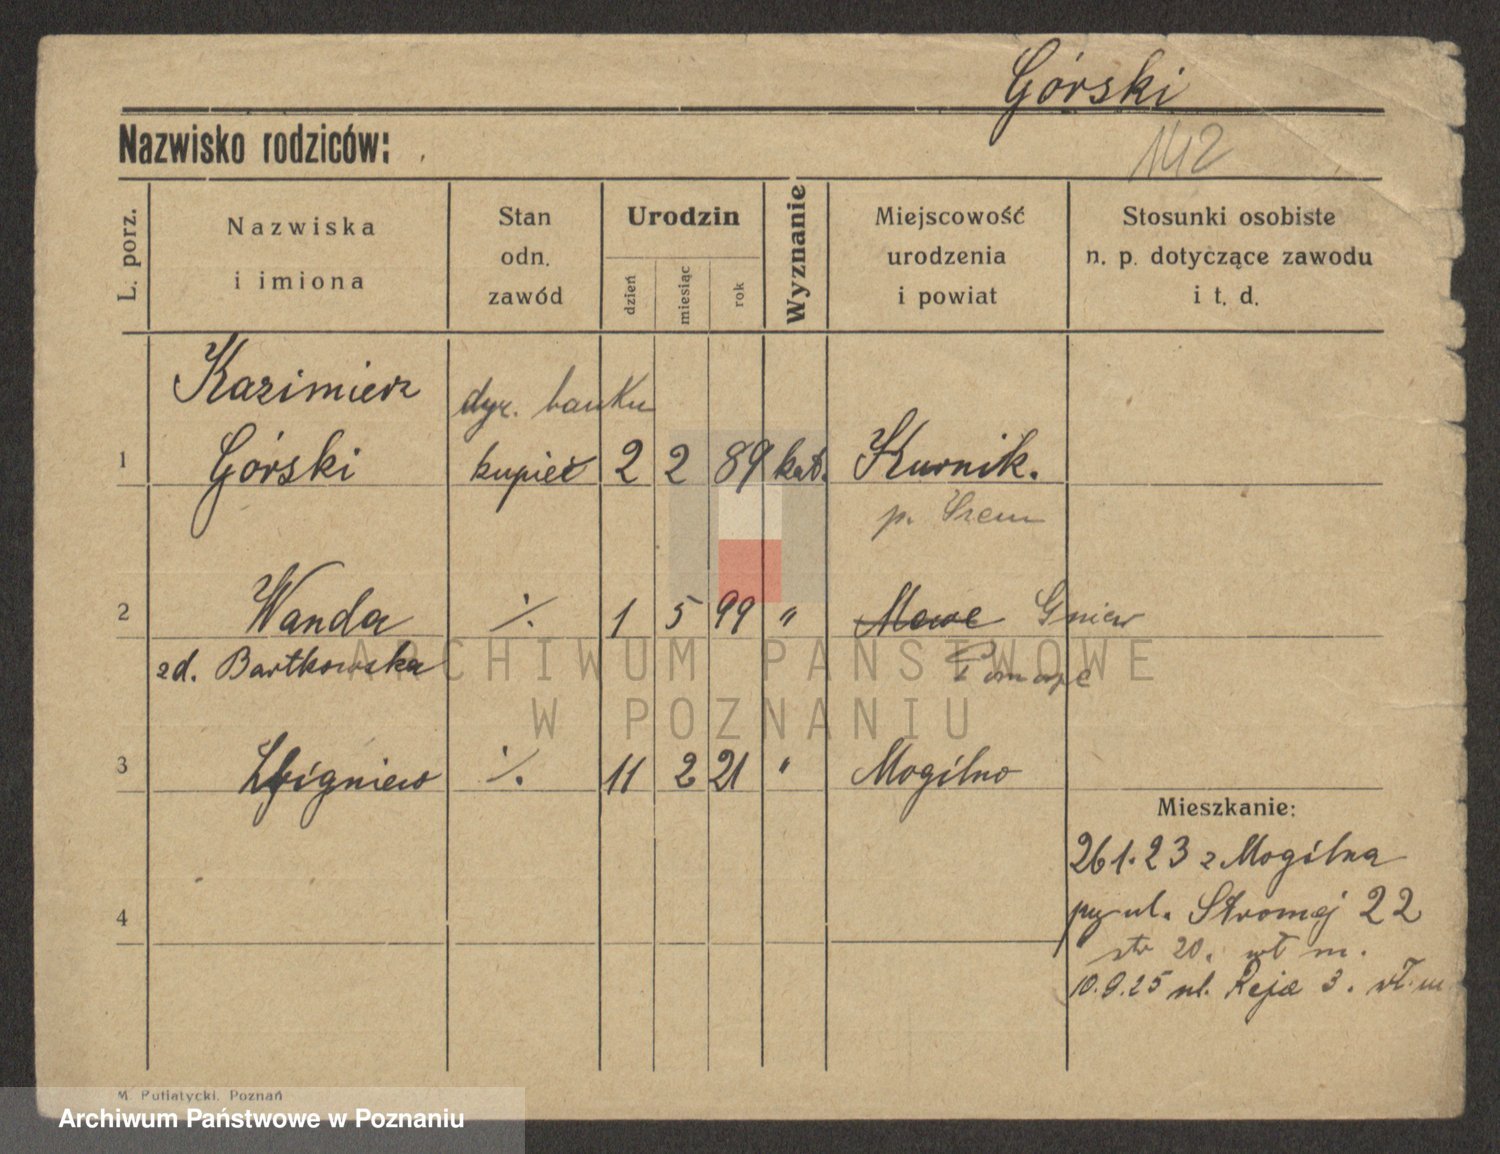 Górski
142
Nazwisko rodziców:
L. porz.
Nazwiska
i imiona
Stan
odn.
zawód
Urodzin
dzień
miesiąc
rok
Wyznanie
Miejscowość
urodzenia
i powiat
Stosunki osobiste
n. p. dotyczące zawodu
i t. d.
Kazimierz
dyr. banku
1 Górski kupiec 2 2 89 kat. Kurnik.
p. Śrem
2 Wanda ·/. 1 5 99 " Mewe Gniew
zd. Bartkowska Pomorze
3 Zbigniew ·/. 11 2 21 " Mogilno
Mieszkanie:
26 1. 23 z Mogilna
4
przy ul. Stromej 22
str 20. wł m.
10.9.25 ul. Reja 3. wł. m
M. Putiatycki, Poznań
ARCHIWUM PAŃSTWOWE
W POZNANIU
Archiwum Państwowe w Poznaniu